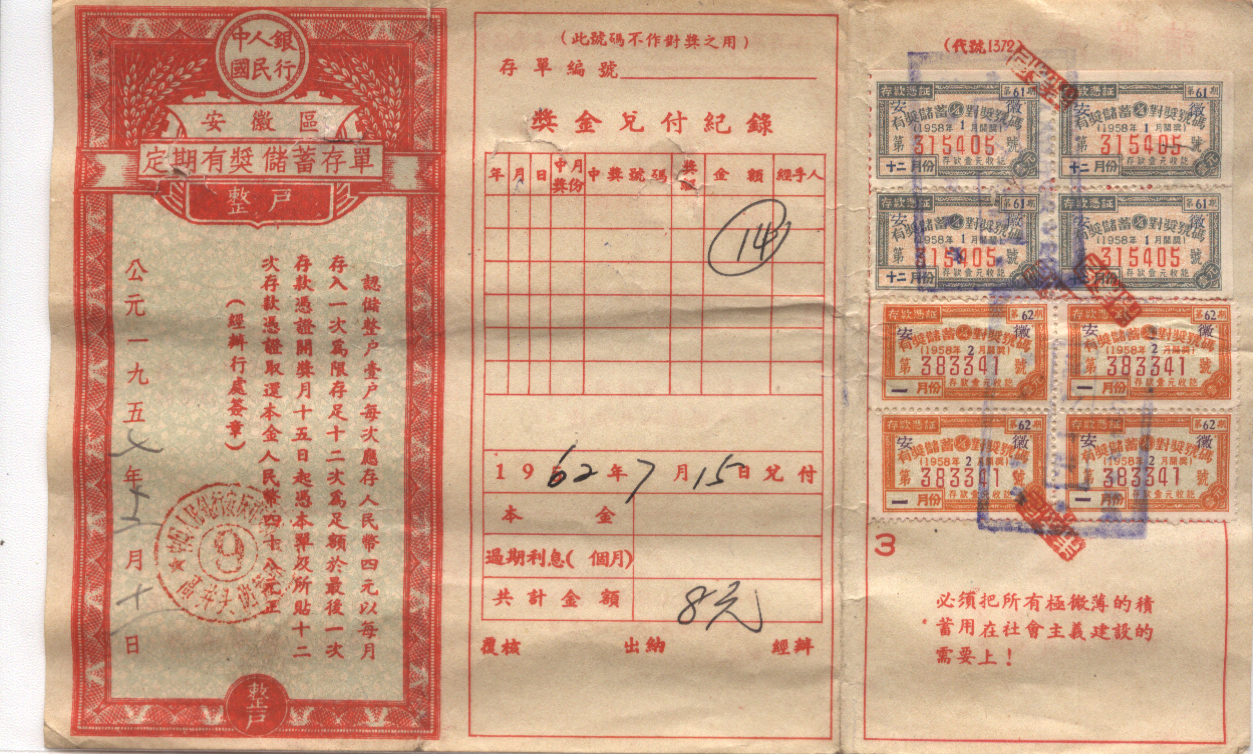 中國人民銀行
安徽區
定期有獎儲蓄存單
整戶
認儲整户壹户每次應存人民幣四元以每月
存入一次為限存足十二次為足額於最後一次
存款憑證開獎月十五日起憑本單及所貼十二
次存款憑證取還本金人民幣四十八元正
(經辦行處簽章)
公元一九五七年 月十日
9
整戶
(此號碼不作對獎之用)
存單編號
獎金兌付紀錄
年 月 日 中獎月份 中獎號碼 獎級 金額 經手人
14
1962年7月15日兌付
本金
過期利息( 個月)
共計金額 8元
覆核 出納 經辦
(代號1372)
存款憑証 第61期 存款憑証 第61期
安徽 有獎儲蓄對獎號碼 安徽 有獎儲蓄對獎號碼
(1958年1月開獎) (1958年1月開獎)
第315405號 第315405號
十二月份 存款壹元收訖 十二月份 存款壹元收訖
存款憑証 第61期 存款憑証 第61期
安徽 有獎儲蓄對獎號碼 安徽 有獎儲蓄對獎號碼
(1958年1月開獎) (1958年1月開獎)
第315405號 第315405號
十二月份 存款壹元收訖 十二月份 存款壹元收訖
存款憑証 第62期 存款憑証 第62期
安徽 有獎儲蓄對獎號碼 安徽 有獎儲蓄對獎號碼
(1958年2月開獎) (1958年2月開獎)
第383341號 第383341號
一月份 存款壹元收訖 一月份 存款壹元收訖
存款憑証 第62期 存款憑証 第62期
安徽 有獎儲蓄對獎號碼 安徽 有獎儲蓄對獎號碼
(1958年2月開獎) (1958年2月開獎)
第383341號 第383341號
一月份 存款壹元收訖 一月份 存款壹元收訖
3
必須把所有極微薄的積
蓄用在社會主義建設的
需要上！